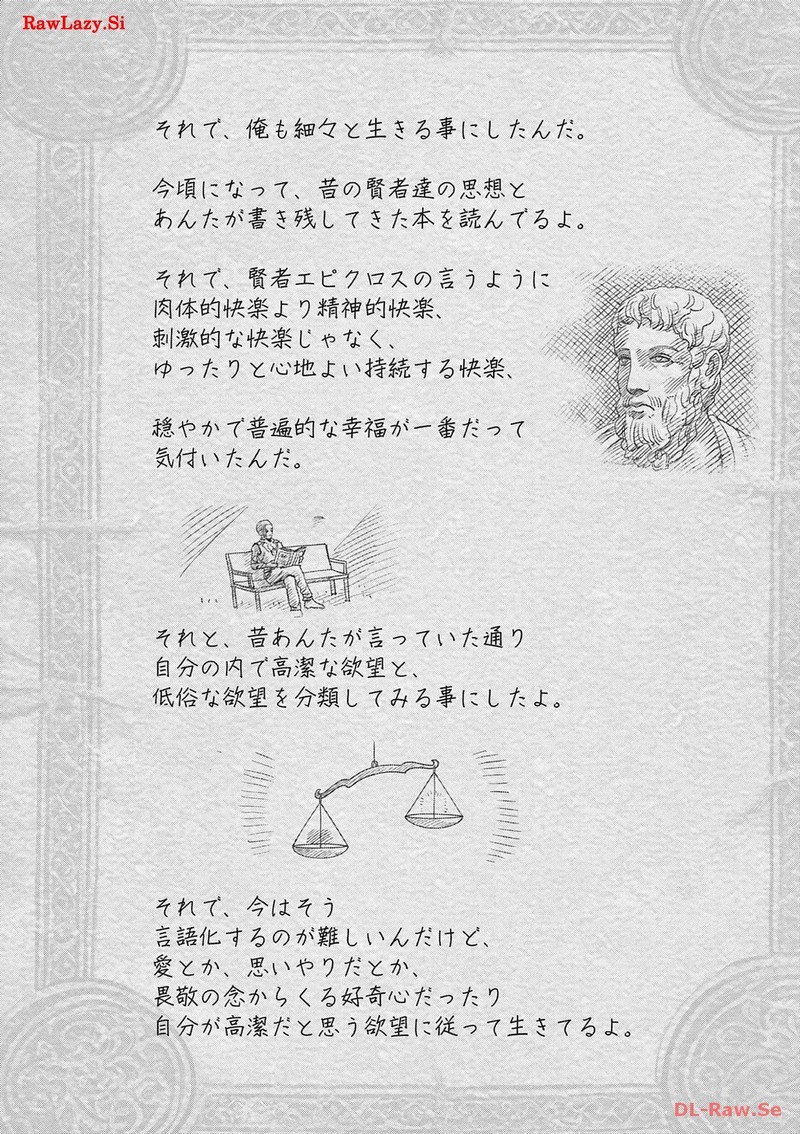 RawLazy.Si
それで、俺も細々と生きる事にしたんだ。
今頃になって、昔の賢者達の思想と
あんたが書き残してきた本を読んでるよ。
それで、賢者エピクロスの言うように
肉体的快楽より精神的快楽、
刺激的な快楽じゃなく、
ゆったりと心地よい持続する快楽、
穏やかで普遍的な幸福が一番だって
気付いたんだ。
それと、昔あんたが言っていた通り
自分の内で高潔な欲望と、
低俗な欲望を分類してみる事にしたよ。
それで、今はそう
言語化するのが難しいんだけど、
愛とか、思いやりだとか、
畏敬の念からくる好奇心だったり
自分が高潔だと思う欲望に従って生きてるよ。
DL-Raw.Se